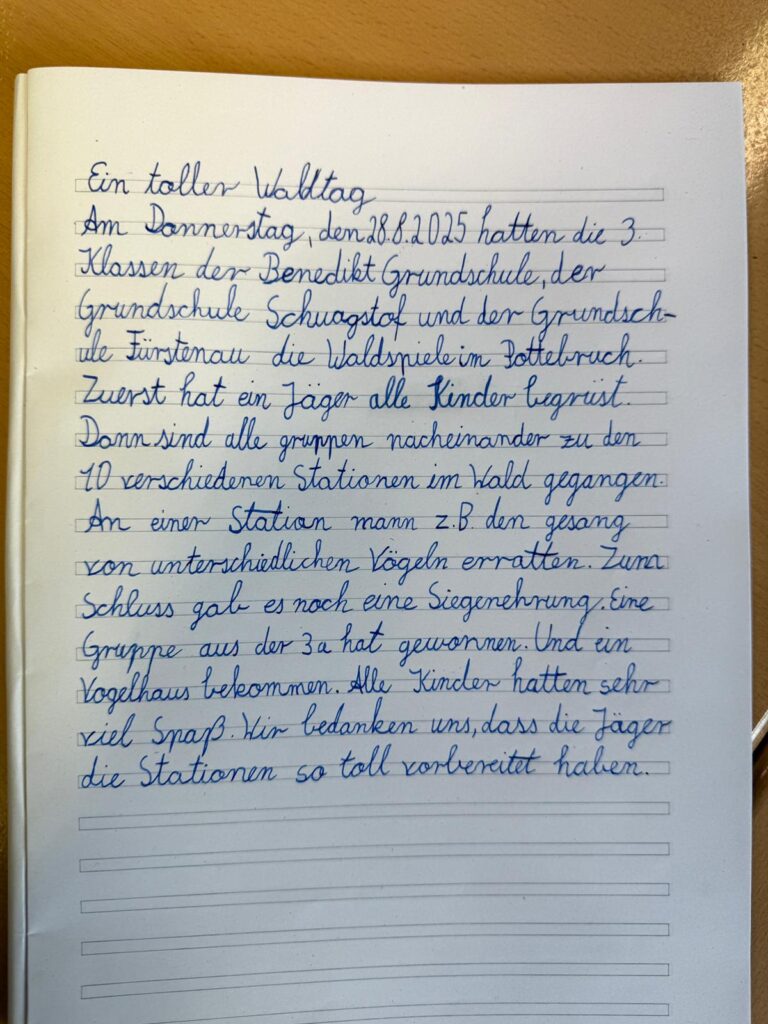 Ein toller Waldtag
Am Donnerstag, den 28.8.2025 hatten die 3.
Klassen der Benedikt Grundschule, der
Grundschule Schwagstof und der Grundsch-
ule Fürstenau die Waldspiele im Pottebruch.
Zuerst hat ein Jäger alle Kinder begrüst.
Dann sind alle gruppen nacheinander zu den
10 verschiedenen Stationen im Wald gegangen.
An einer Station mann z.B. den gesang
von unterschiedlichen Vögeln erratten. Zum
Schluss gab es noch eine Siegenehrung. Eine
Gruppe aus der 3a hat gewonnen. Und ein
Vogelhaus bekommen. Alle Kinder hatten sehr
viel Spaß. Wir bedanken uns, dass die Jäger
die Stationen so toll vorbereitet haben.